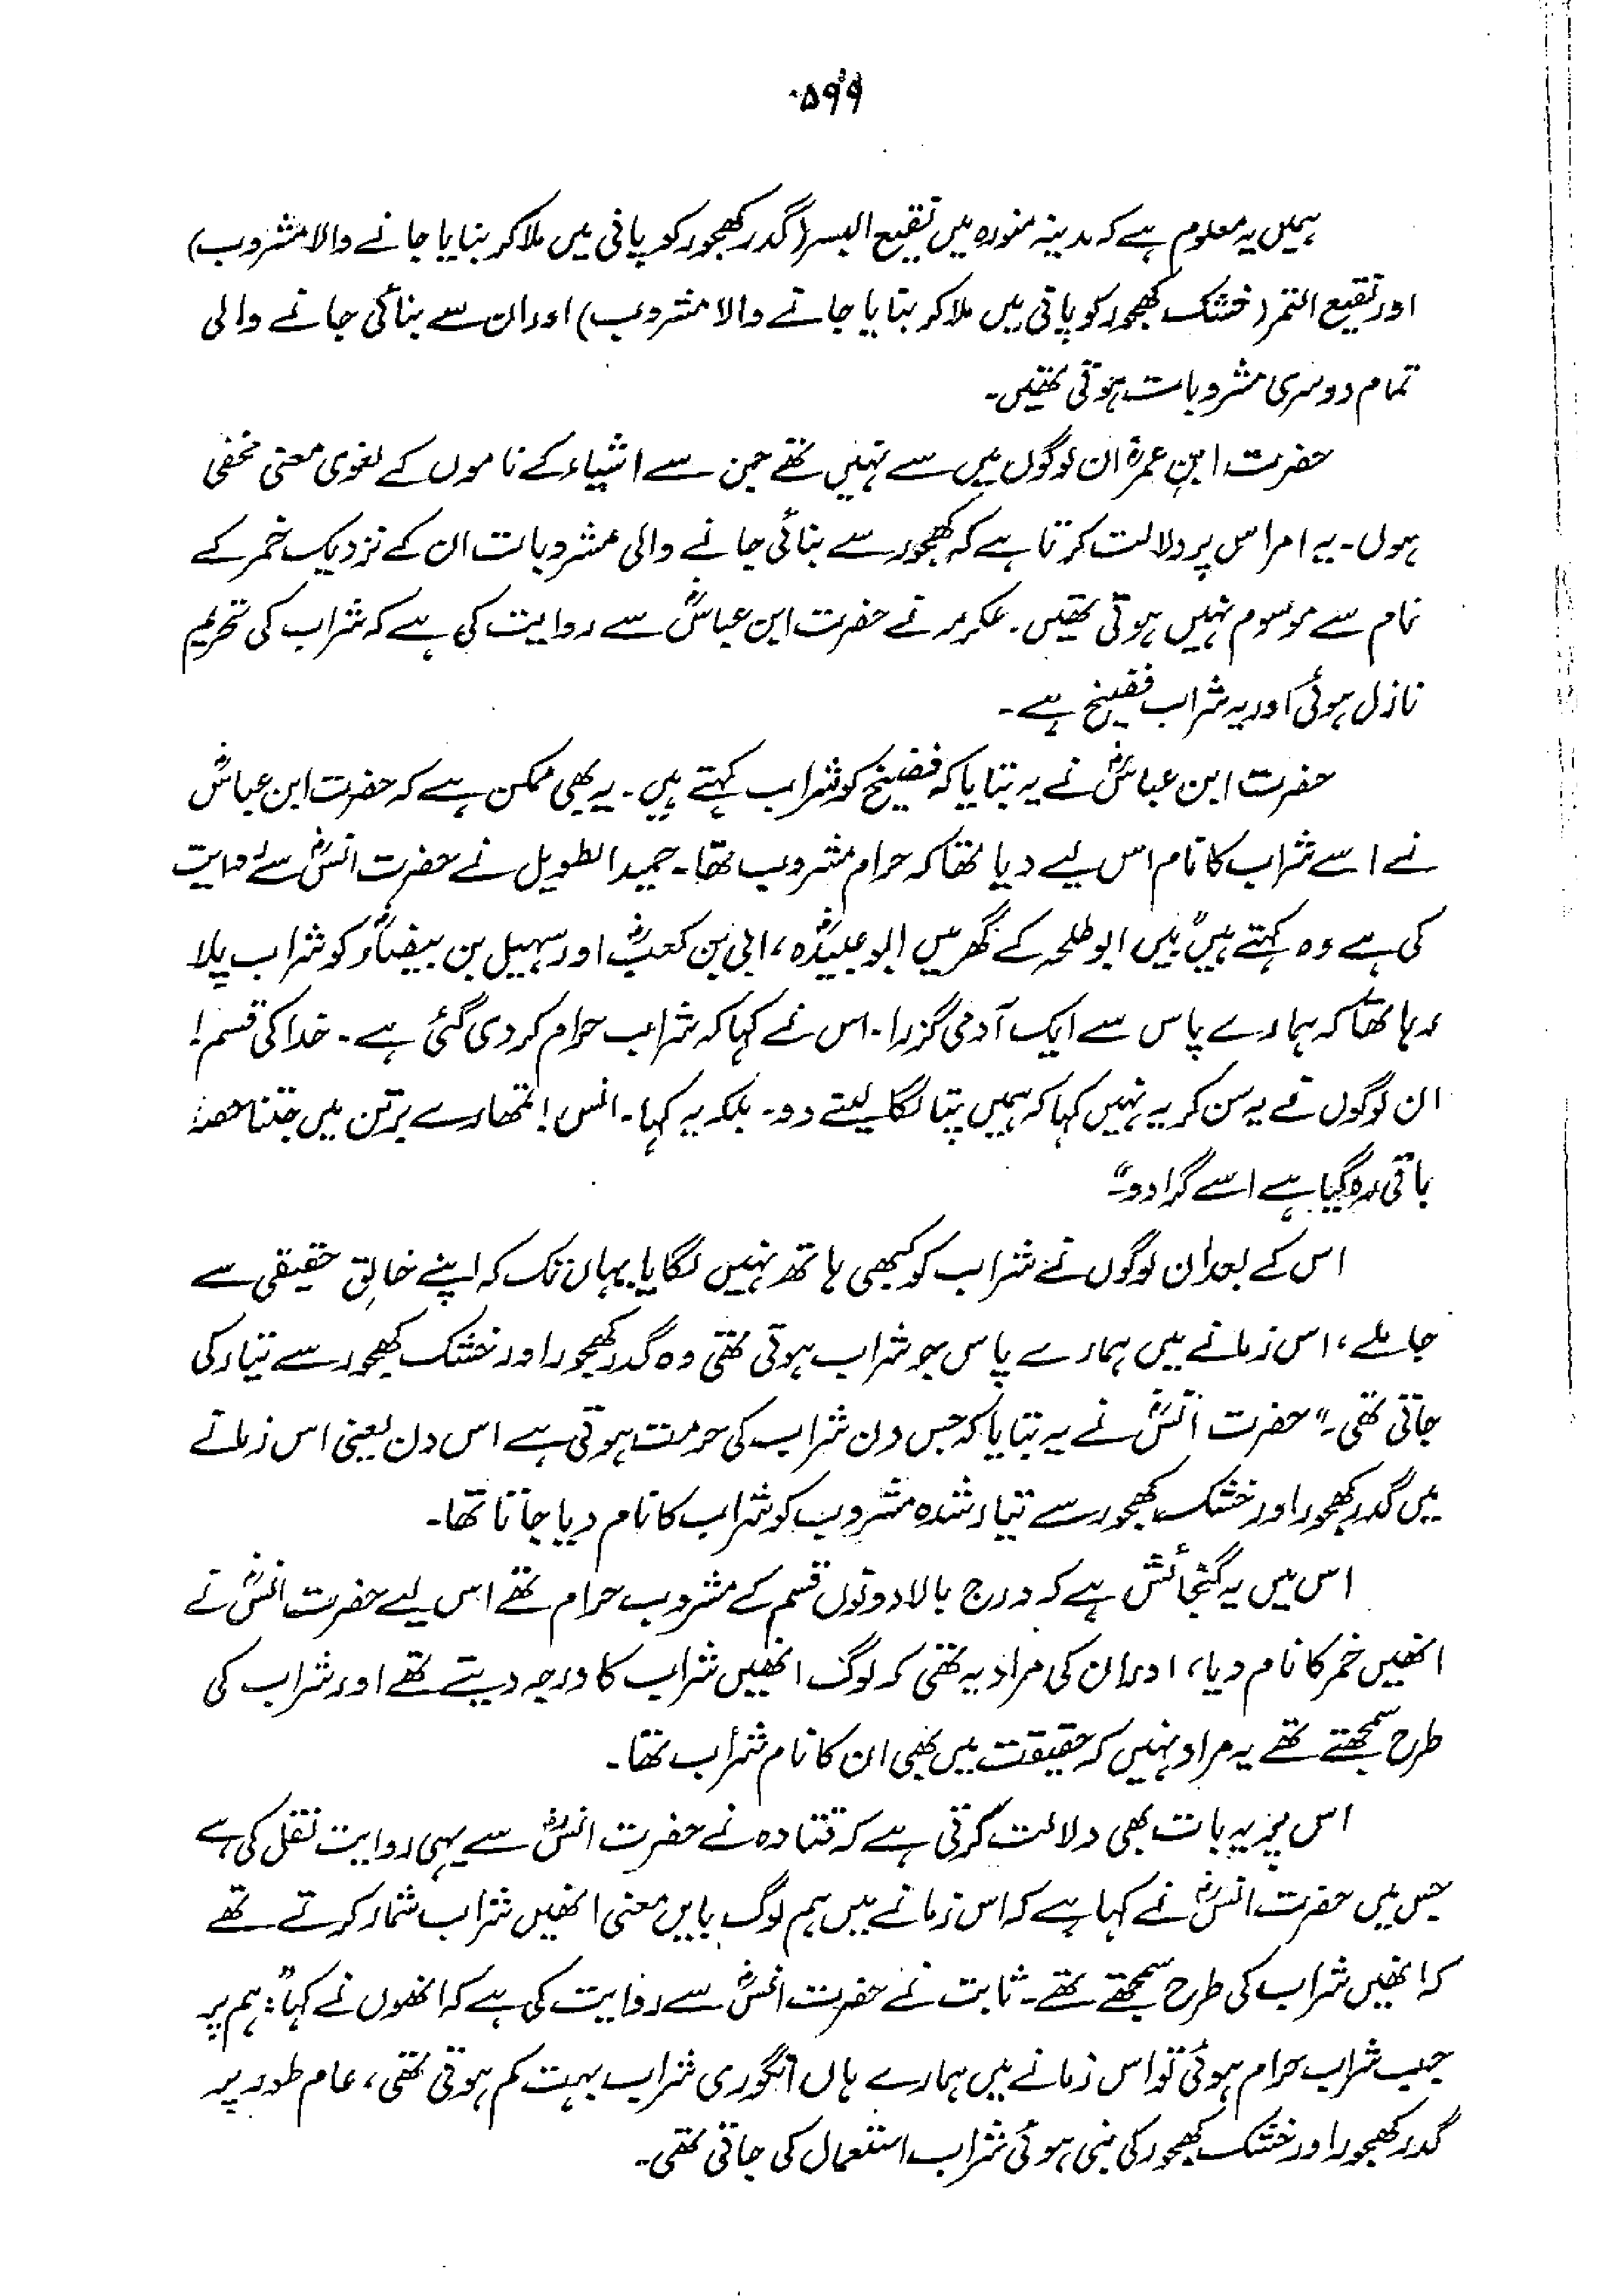 ۵۹۹
ہمیں یہ معلوم ہے کہ مدینہ منورہ میں نقیع البسر (گدر کھجور کو پانی میں ملا کر بنایا جانے والا مشروب)
اور نقیع التمر (خشک کھجور کو پانی میں ملا کر بنایا جانے والا مشروب) اور ان سے بنائی جانے والی
تمام دوسری مشروبات ہوتی تھیں۔
حضرت ابن عمرؓ ان لوگوں میں سے نہیں تھے جن سے اشیاء کے ناموں کے لغوی معنی مخفی
ہوں۔ یہ امر اس پر دلالت کرتا ہے کہ کھجور سے بنائی جانے والی مشروبات ان کے نزدیک خمر کے
نام سے موسوم نہیں ہوتی تھیں۔ عکرمہ نے حضرت ابن عباسؓ سے روایت کی ہے کہ شراب کی تحریم
نازل ہوئی اور یہ شراب فضیخ ہے۔
حضرت ابن عباسؓ نے یہ بتایا کہ فضیخ کو شراب کہتے ہیں۔ یہ بھی ممکن ہے کہ حضرت ابن عباسؓ
نے اسے شراب کا نام اس لیے دیا تھا کہ حرام مشروب تھا۔ حمید الطویل نے حضرت انسؓ سے روایت
کی ہے وہ کہتے ہیں "میں ابو طلحہ کے گھر میں ابو عبیدؓہ، ابی بن کعبؓ اور سہیل بن بیضاؓء کو شراب پلا
رہا تھا کہ ہمارے پاس سے ایک آدمی گزرا۔ اس نے کہا کہ شراب حرام کر دی گئی ہے۔ خدا کی قسم!
ان لوگوں نے یہ سن کر یہ نہیں کہا کہ ہمیں پتا لگا لینے دو۔ بلکہ یہ کہا۔ انس! تمھارے برتن میں جتنا حصہ
باقی رہ گیا ہے اسے گرا دو"۔
اس کے بعد ان لوگوں نے شراب کو کبھی ہاتھ نہیں لگایا یہاں تک کہ اپنے خالق حقیقی سے
جا ملے، اس زمانے میں ہمارے پاس جو شراب ہوتی تھی وہ گدر کھجور اور خشک کھجور سے تیار کی
جاتی تھی۔" حضرت انسؓ نے یہ بتایا کہ جس دن شراب کی حرمت ہوتی ہے اس دن یعنی اس زمانے
میں گدر کھجور اور خشک کھجور سے تیار شدہ مشروب کو شراب کا نام دیا جاتا تھا۔
اس میں یہ گنجائش ہے کہ درج بالا دونوں قسم کے مشروب حرام تھے اس لیے حضرت انسؓ نے
انھیں خمر کا نام دیا، اور ان کی مراد یہ تھی کہ لوگ انھیں شراب کا درجہ دیتے تھے اور شراب کی
طرح سمجھتے تھے یہ مراد نہیں کہ حقیقت میں بھی ان کا نام شراب تھا۔
اس پر یہ بات بھی دلالت کرتی ہے کہ قتادہ نے حضرت انسؓ سے یہی روایت نقل کی ہے
جس میں حضرت انسؓ نے کہا ہے کہ اس زمانے میں ہم لوگ بایں معنی انھیں شراب شمار کرتے تھے
کہ انھیں شراب کی طرح سمجھتے تھے۔ ثابت نے حضرت انسؓ سے روایت کی ہے کہ انھوں نے کہا: "ہم پر
جب شراب حرام ہوئی تو اس زمانے میں ہمارے ہاں انگوری شراب بہت کم ہوتی تھی، عام طور پر
گدر کھجور اور خشک کھجور کی بنی ہوئی شراب استعمال کی جاتی تھی۔